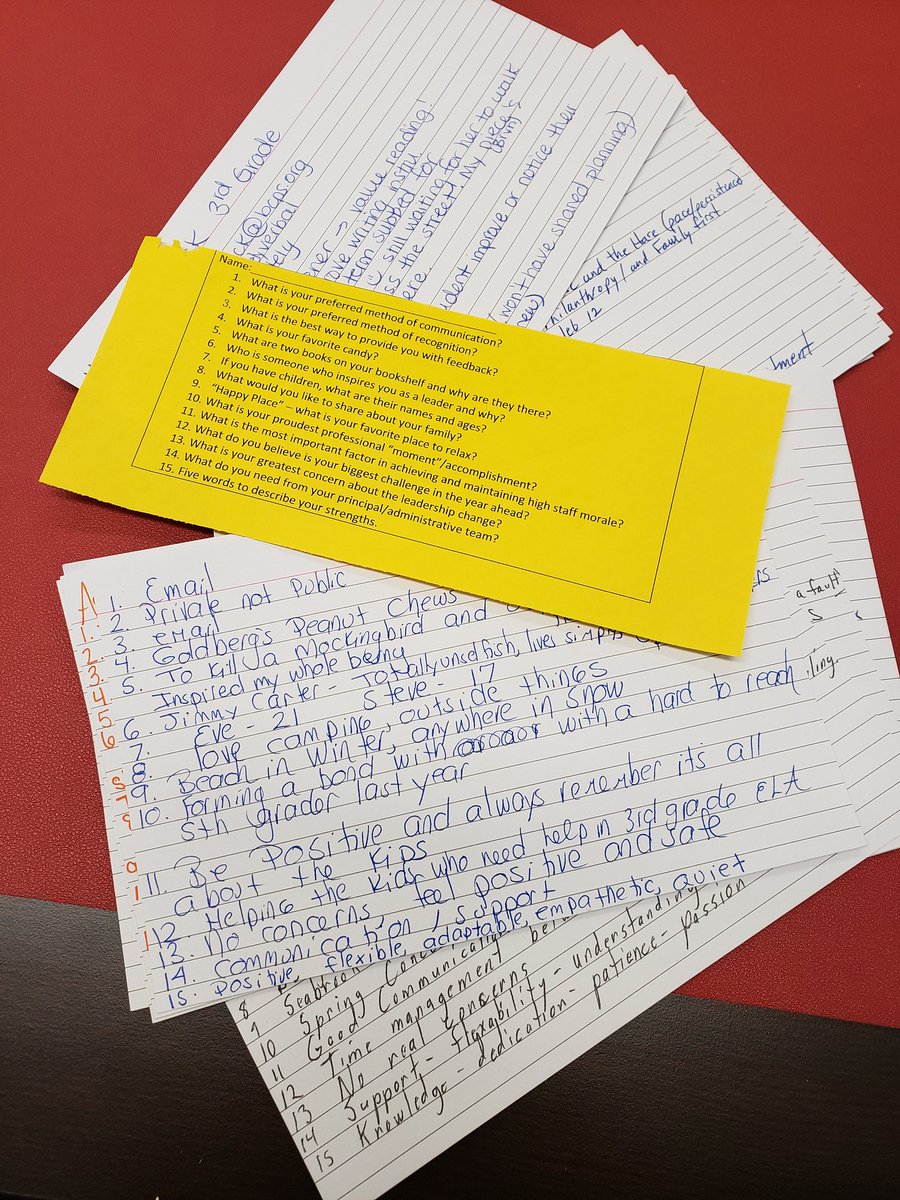 3rd Grade
@bcps.org
value reading!
writing instru
term subbed for
still waiting for her to walk
the street. My piece is
(Brivn)
ere.
dent improve or notice their
won't have shared planning)
new)
and the Hare (pace/persistence)
hilanthropy/and Family first.
12
tment
Name:
1. What is your preferred method of communication?
2. What is your preferred method of recognition?
3. What is the best way to provide you with feedback?
4. What is your favorite candy?
5. What are two books on your bookshelf and why are they there?
6. Who is someone who inspires you as a leader and why?
7. If you have children, what are their names and ages?
8. What would you like to share about your family?
9. "Happy Place" – what is your favorite place to relax?
10. What is your proudest professional "moment"/accomplishment?
11. What is the most important factor in achieving and maintaining high staff morale?
12. What do you believe is your biggest challenge in the year ahead?
13. What is your greatest concern about the leadership change?
14. What do you need from your principal/administrative team?
15. Five words to describe your strengths.
1. Email
2. Private not Public
3. email
4. Goldbergs Peanut Chews
5. To Kill a Mockingbird and
Inspired my whole being
6. Jimmy Carter - Totally unselfish, lives simply
7. Eve - 21 Steve - 17
8. love camping, outside things
9. Beach in Winter, anywhere in Snow
10. Forming a bond with with a hard to reach
5th grader last year
11. Be Positive and always remember its all
about the kids
12. Helping the kids who need help in 3rd grade ELA
13. No concerns, feel positive and safe
14. communication / support
15. positive, flexible, adaptable, empathetic, quiet
a fault
iling
8
9 Spring
10 Good Communication
11 Time management
12 No real concerns
13 Support - flexability - understanding
14 Knowledge - dedication - patience - passion
15